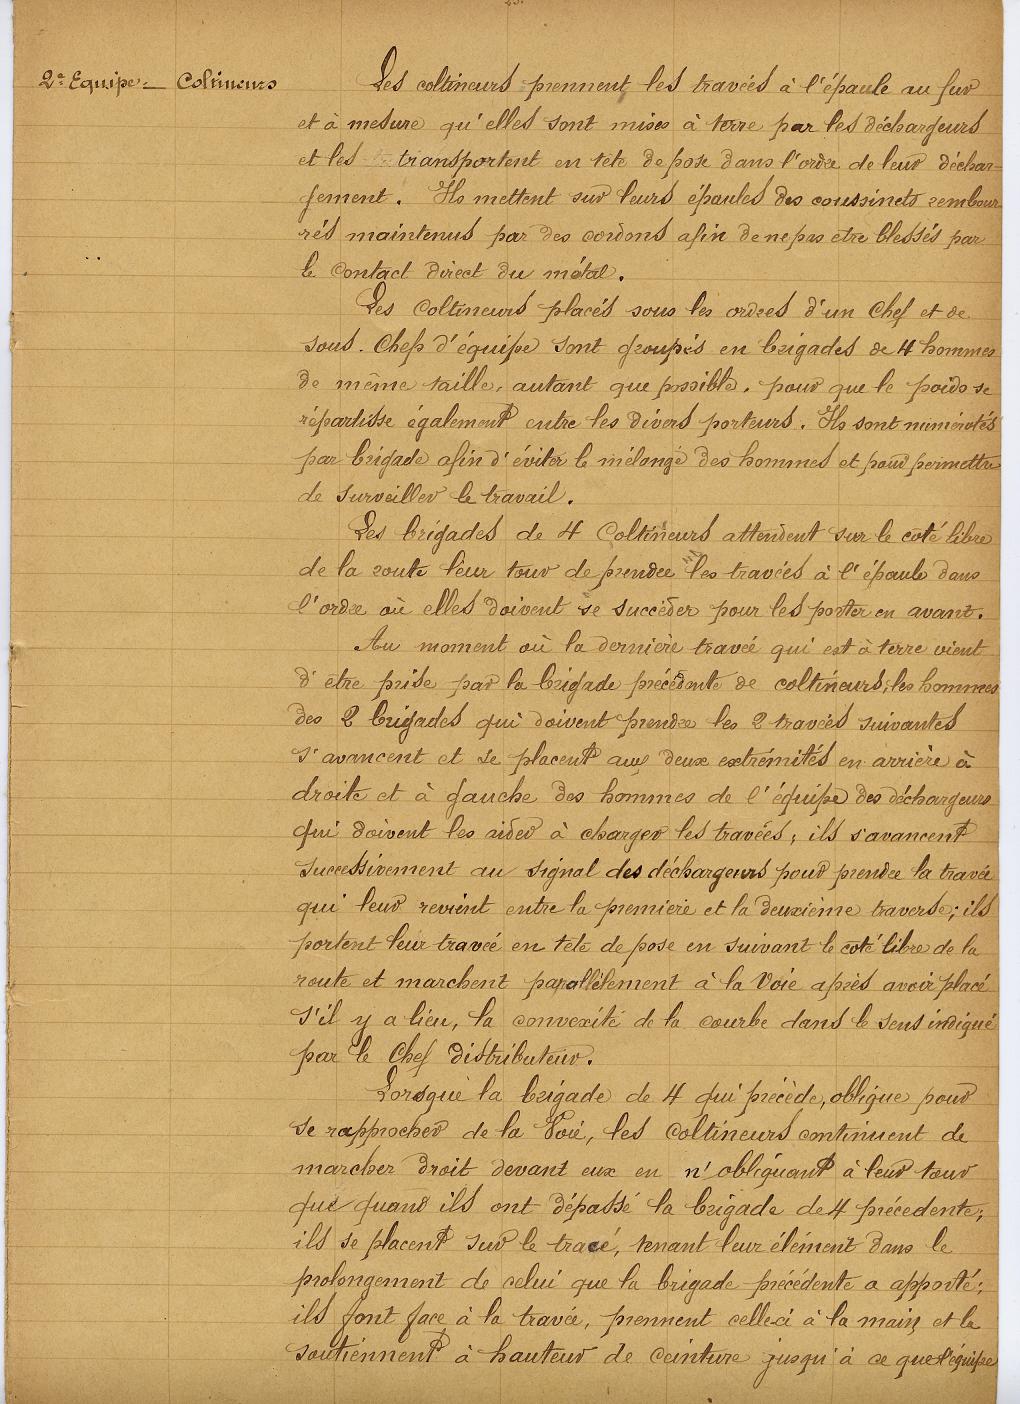 23.
2e Equipe = Coltineurs
Les coltineurs prennent les travées à l'épaule au fur
et à mesure qu'elles sont mises à terre par les déchargeurs
et les transportent en tête de pose dans l'ordre de leur déchar-
gement. Ils mettent sur leurs épaules des coussinets rembour-
rés maintenus par des cordons afin de ne pas être blessés par
le contact direct du métal.
Les Coltineurs placés sous les ordres d'un Chef et de
sous. Chefs d'équipe sont groupés en brigades de 4 hommes
de même taille, autant que possible, pour que le poids se
répartisse également entre les divers porteurs. Ils sont numérotés
par brigade afin d'éviter le mélange des hommes et pour permettre
de surveiller le travail.
Les brigades de 4 Coltineurs attendent sur le coté libre
de la route leur tour de prendre les travées à l'épaule dans
l'ordre où elles doivent se succéder pour les porter en avant.
Au moment où la dernière travée qui est à terre vient
d'être prise par la brigade précédente de coltineurs, les hommes
des 2 brigades qui doivent prendre les 2 travées suivantes
s'avancent et se placent aux deux extrémités en arrière à
droite et à gauche des hommes de l'équipe des déchargeurs
qui doivent les aider à charger les travées; ils s'avancent
successivement au signal des déchargeurs pour prendre la travée
qui leur revient entre la première et la deuxième traverse; ils
portent leur travée en tête de pose en suivant le coté libre de la
route et marchent parallèlement à la Voie après avoir placé
s'il y a lieu, la convexité de la courbe dans le sens indiqué
par le Chef distributeur.
Lorsque la brigade de 4 qui précède, oblique pour
se rapprocher de la Voie, les coltineurs continuent de
marcher droit devant eux en n'obliquant à leur tour
que quand ils ont dépassé la brigade de 4 précédente;
ils se placent sur le tracé, tenant leur élément dans le
prolongement de celui que la brigade précédente a apporté;
ils font face à la travée, prennent celle-ci à la main et la
soutiennent à hauteur de ceinture jusqu'à ce que l'équipe